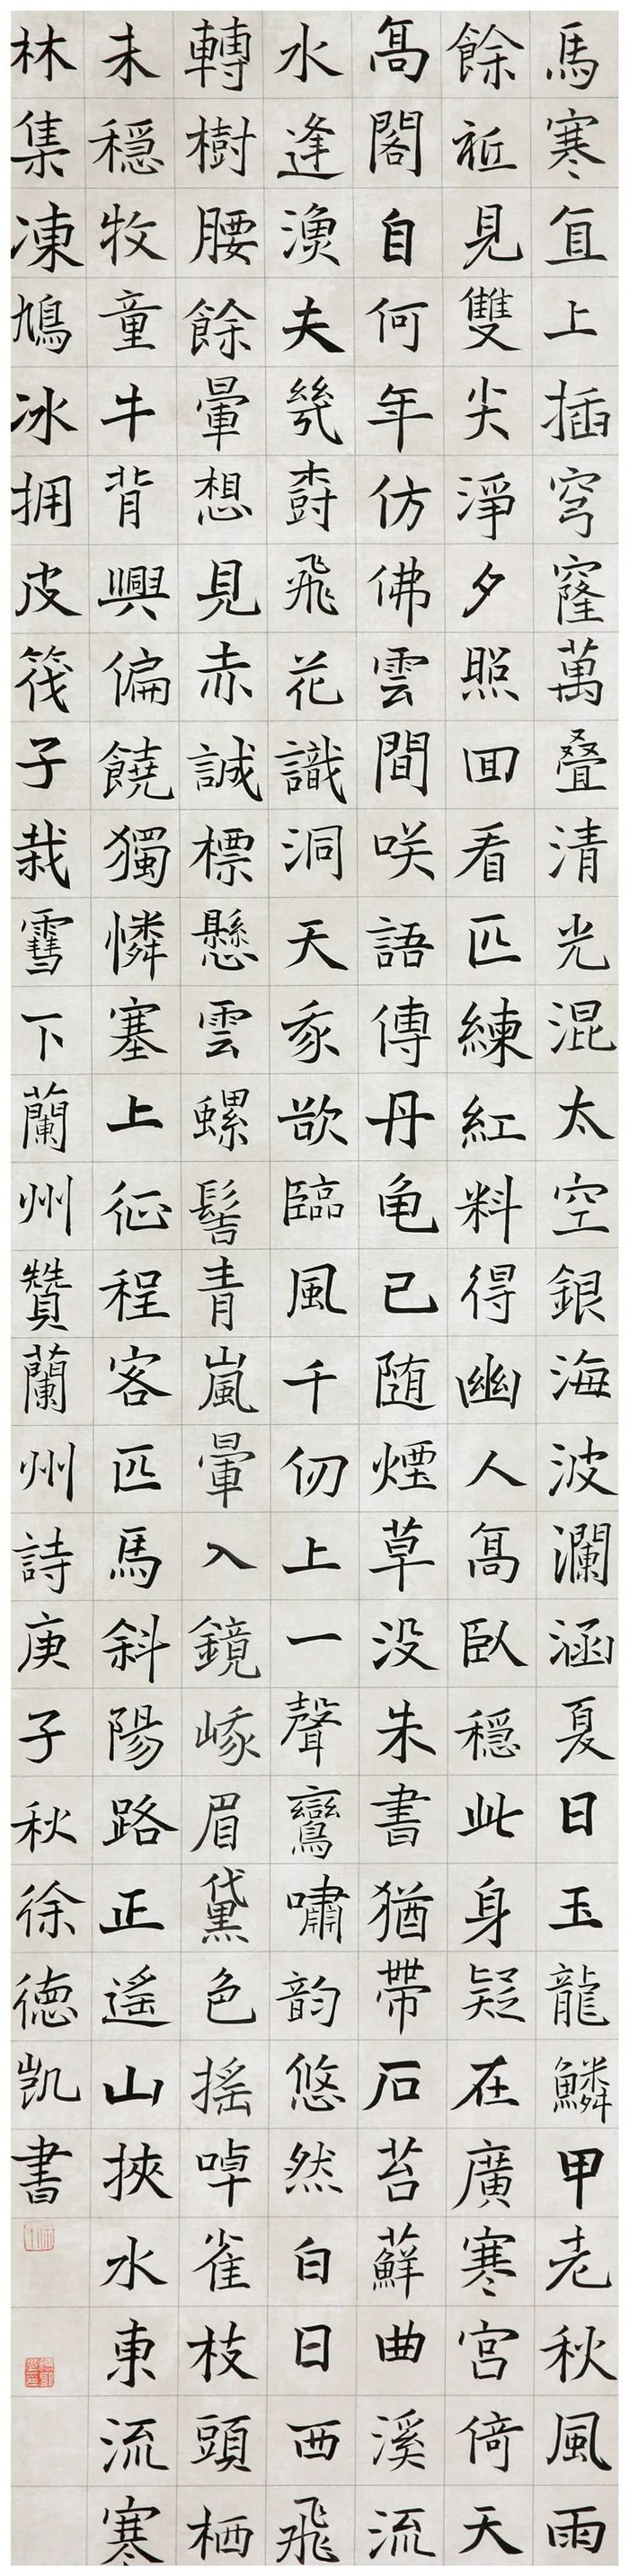 馬寒直上插穹窿萬叠清光混太空銀海波瀾涵夏日玉龍鱗甲老秋風雨
餘衹見雙尖淨夕照回看匹練紅料得幽人高臥穩此身疑在廣寒宮倚天
高閣自何年仿佛雲間咲語傳丹竈已随煙草没朱書猶帶石苔蘚曲溪流
水逢漁夫幾樹飛花識洞天我欲臨風千仞上一聲鸞嘯韵悠然白日西飛
轉樹腰餘暈想見赤誠標懸雲螺髻青嵐暈入鏡峨眉黛色摇啅雀枝頭栖
未穩牧童牛背興偏饒獨憐塞上征程客匹馬斜陽路正遥山挾水東流寒
林集凍鳩冰拥皮筏子栽雪下蘭州贊蘭州詩庚子秋徐德凯書